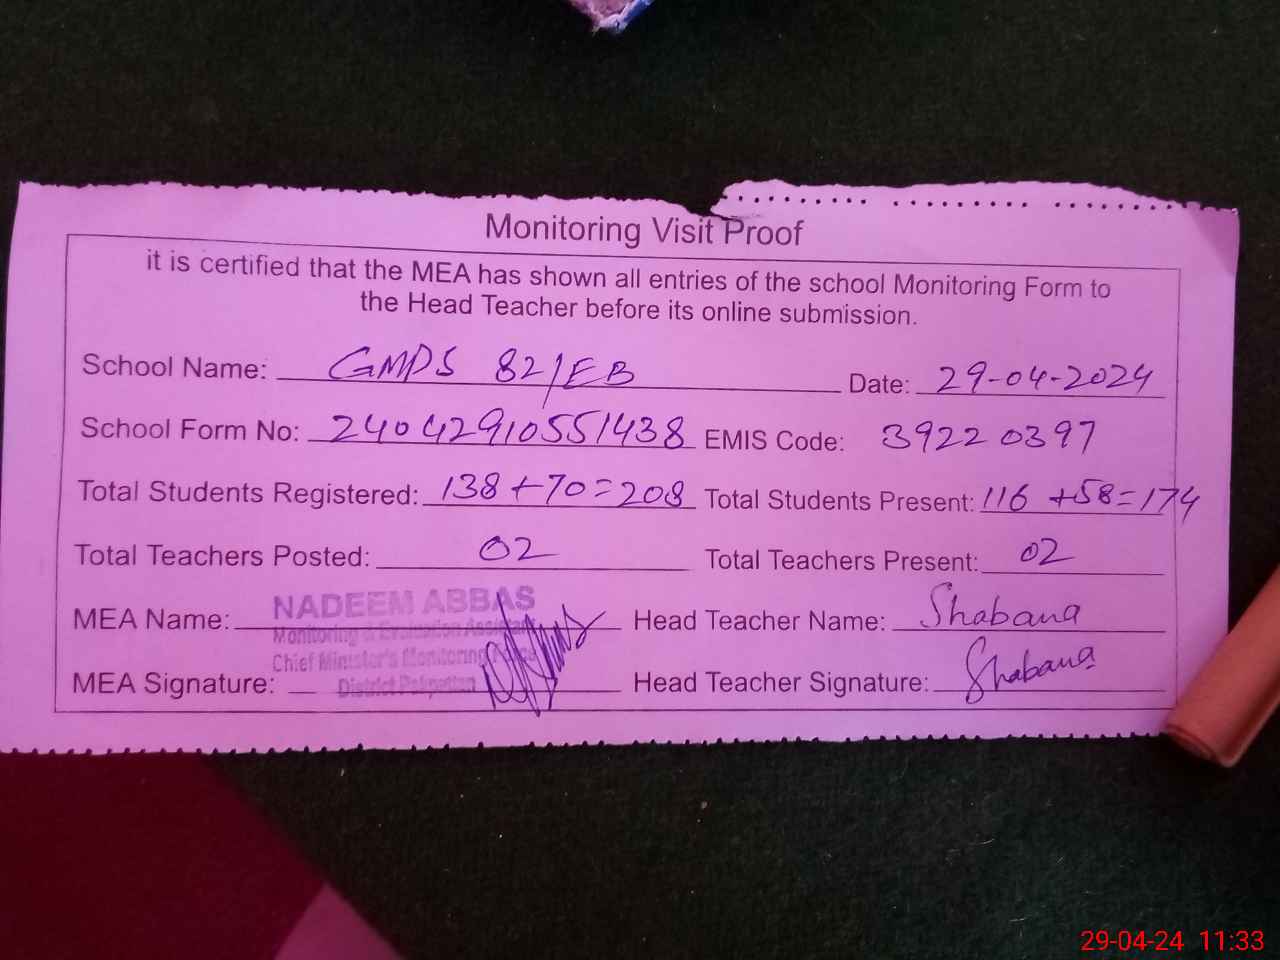 Monitoring Visit Proof
it is certified that the MEA has shown all entries of the school Monitoring Form to
the Head Teacher before its online submission.
School Name: GMPS 82/EB Date: 29-04-2024
School Form No: 24042910551438 EMIS Code: 39220397
Total Students Registered: 138+70=208 Total Students Present: 116+58=174
Total Teachers Posted: 02 Total Teachers Present: 02
MEA Name: NADEEM ABBAS Head Teacher Name: Shabana
Monitoring & Evaluation Assistant
Chief Minister's Monitoring Force
MEA Signature: District Pakpattan Head Teacher Signature: Shabana
29-04-24 11:33